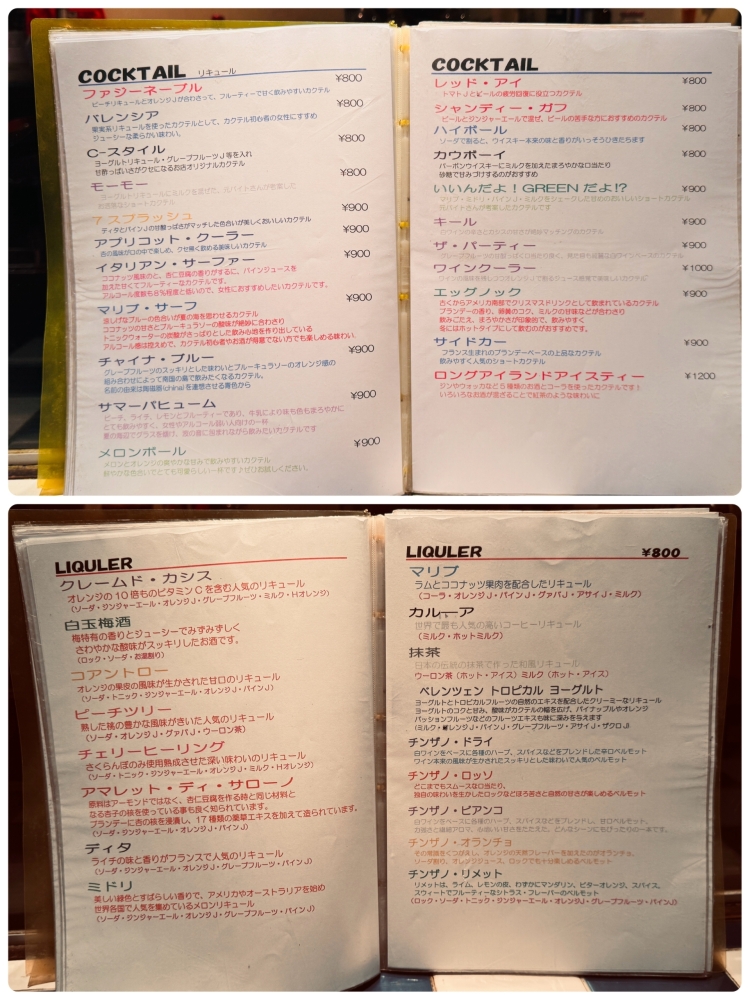 COCKTAIL リキュール
ファジーネーブル ¥800
ピーチリキュールとオレンジJが合わさって、フルーティーで甘く飲みやすいカクテル
バレンシア ¥800
果実系リキュールを使ったカクテルとして、カクテル初心者の女性にすすめ
ジューシーな柔らかい味わい。
C-スタイル ¥800
ヨーグルトリキュール・グレープフルーツJ等を入れ
甘酸っぱいさがクセになるお店オリジナルカクテル
モーモー ¥800
ヨーグルトリキュールにミルクを混ぜた、元バイトさんが考案した
７スプラッシュ ¥900
ディタとパインJの甘酸っぱさがマッチした色合いが美しくおいしいカクテル
アプリコット・クーラー ¥900
杏の風味が口の中で楽しめ、クセ無く飲める美味しいカクテル
イタリアン・サーファー ¥900
ココナッツ風味のと、杏仁豆腐の香りがするに、パインジュースを
加えた甘くてフルーティーなカクテルです。
アルコール度数も８％程度と低いので、女性におすすめしたいカクテルです。
マリブ・サーフ ¥900
涼しげなブルーの色合いが夏の海を思わせるカクテル
ココナッツの甘さとブルーキュラソーの酸味が絶妙に合わさり
トニックウォーターの炭酸がさっぱりとした飲み心地を作り出している
アルコール感は控えめで、カクテル初心者やお酒が得意でない方でも楽しめる味わい。
チャイナ・ブルー ¥900
グレープフルーツのスッキリとした味わいとブルーキュラソーのオレンジ感の
組み合わせによって南国の島で飲みたくなるカクテル。
名前の由来は陶磁器(china)を連想させる青色から
サマーパヒューム ¥900
ピーチ、ライチ、レモンとフルーティーであり、牛乳により味も色もまろやかに
とても飲みやすく、女性やアルコール弱い人向けの一杯
夏の海辺でグラスを傾け、潮の香に包まれながら飲みたいカクテルです
メロンボール ¥900
メロンとオレンジの爽やかな甘みで飲みやすいカクテル
鮮やかな色合いでとても可愛らしい一杯です♪ぜひお試しください。
COCKTAIL
レッド・アイ ¥800
トマトJとビールの疲労回復に役立つカクテル
シャンディー・ガフ ¥800
ビールとジンジャーエールで混ぜ、ビールの苦手な方におすすめのカクテル
ハイボール ¥800
ソーダで割ると、ウイスキー本来の味と香りがいっそうひきたちます
カウボーイ ¥800
バーボンウイスキーにミルクを加えたまろやかな口当たり
砂糖で甘みづけするのがおすすめ
いいんだよ！GREENだよ!? ¥900
マリブ・ミドリ・パインJ・ミルクをシェークした甘めのおいしいショートカクテル
元バイトさんが考案したカクテルです
キール ¥900
ザ・パーティー ¥900
ワインクーラー ¥1000
エッグノック ¥900
古くからアメリカ南部でクリスマスドリンクとして飲まれているカクテル
ブランデーの香り、卵黄のコク、ミルクの甘味などが合わさり
飲みごたえ、まろやかさが印象的で、飲みやすく
冬にはホットタイプにして飲むのがおすすめです。
サイドカー ¥900
フランス生まれのブランデーベースの上品なカクテル
飲みやすく人気のショートカクテル
ロングアイランドアイスティー ¥1200
ジンやウォッカなど５種類のお酒とコーラを使ったカクテルです♪
いろいろなお酒が混ざることで紅茶のような味わいに
LIQULER
クレームド・カシス
オレンジの１０倍ものビタミンCを含む人気のリキュール
（ソーダ・ジンジャーエール・オレンジJ・グレープフルーツ・ミルク・Hオレンジ）
白玉梅酒
梅特有の香りとジューシーでみずみずしく
さわやかな酸味がスッキリしたお酒です。
（ロック・ソーダ・お湯割り）
コアントロー
オレンジの果皮の風味が生かされた甘口のリキュール
（ソーダ・トニック・ジンジャーエール・オレンジJ・パインJ）
ピーチツリー
熟した桃の豊かな風味がきいた人気のリキュール
（ソーダ・オレンジJ・グァバJ・ウーロン茶）
チェリーヒーリング
さくらんぼのみ使用熟成させた深い味わいのリキュール
（ソーダ・トニック・ジンジャーエール・オレンジJ・ミルク・Hオレンジ）
アマレット・ディ・サローノ
原料はアーモンドではなく、杏仁豆腐を作る時と同じ材料と
なる杏子の核を使っている事も良く知られています。
ブランデーに杏の核を浸漬し、１７種類の薬草エキスを加えて造られています。
（ソーダ・ジンジャーエール・オレンジJ・パインJ）
ディタ
ライチの味と香りがフランスで人気のリキュール
（ソーダ・ジンジャーエール・オレンジJ・グレープフルーツ・パインJ）
ミドリ
美しい緑色とすばらしい香りで、アメリカやオーストラリアを始め
世界各国で人気を集めているメロンリキュール
（ソーダ・ジンジャーエール・オレンジJ・グレープフルーツ・パインJ）
LIQULER ¥800
マリブ
ラムとココナッツ果肉を配合したリキュール
（コーラ・オレンジJ・パインJ・グァバJ・アサイJ・ミルク）
カルーア
世界で最も人気の高いコーヒーリキュール
（ミルク・ホットミルク）
抹茶
日本の伝統の抹茶で作った和風リキュール
ウーロン茶（ホット・アイス）ミルク（ホット・アイス）
ベレンツェン トロピカル ヨーグルト
ヨーグルトとトロピカルフルーツの自然のエキスを配合したクリーミーなリキュール
ヨーグルトのコクと甘み、酸味がカクテルの幅を広げ、パイナップルやオレンジ
パッションフルーツなどのフルーツエキスも味に深みを与えます
（ミルク・オレンジJ・パインJ・グレープフルーツ・アサイJ・ザクロJ）
チンザノ・ドライ
白ワインをベースに各種のハーブ、スパイスなどをブレンドした辛口ベルモット
ワイン本来の風味が生かされたスッキリとした味わいで人気のベルモット
チンザノ・ロッソ
どこまでもスムースな口当たり、
独自の味わいを生かしたロックなどほろ苦さと自然の甘さが楽しめるベルモット
チンザノ・ビアンコ
白ワインをベースに各種のハーブ、スパイスなどをブレンドし、甘口ベルモット。
力強さと繊細アロマ、心強い甘さをたたえた、どんなシーンにもぴったりの一本です。
チンザノ・オランチョ
ソーダ割り、オレンジジュース、ロックでも十分楽しめるベルモット
チンザノ・リメット
リメットは、ライム、レモンの皮、わずかにマンダリン、ビターオレンジ、スパイス、
スウィートでフルーティーなシトラス・フレーバーのベルモット
（ロック・ソーダ・トニック・ジンジャーエール・オレンジJ・グレープフルーツ・パインJ）